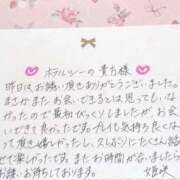 ♡ホテルシーの貴方様♡
昨日はお誘い頂きありがとうございました。
まさかまたお会いできるとは思ってもいな
かったので最初びっくりしましたが、お会
いできて良かったです。
気持ち良くな
って頂き嬉しかったし、久しぶりにたくさん話
せて楽しかったです。またお時間が合いました
らお誘いお待ちしております。
姫咲